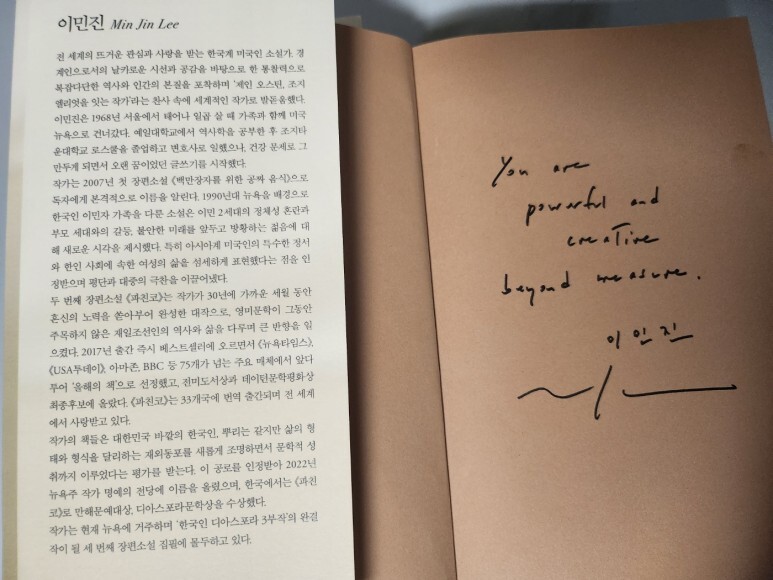 이민진 Min Jin Lee
전 세계의 뜨거운 관심과 사랑을 받는 한국계 미국인 소설가. 경
계인으로서의 날카로운 시선과 공감을 바탕으로 한 통찰력으로
복잡다단한 역사와 인간의 본질을 포착하며 '제인 오스틴, 조지
엘리엇을 잇는 작가'라는 찬사 속에 세계적인 작가로 발돋움했다.
이민진은 1968년 서울에서 태어나 일곱 살 때 가족과 함께 미국
뉴욕으로 건너갔다. 예일대학교에서 역사학을 공부한 후 조지타
운대학교 로스쿨을 졸업하고 변호사로 일했으나, 건강 문제로 그
만두게 되면서 오랜 꿈이었던 글쓰기를 시작했다.
작가는 2007년 첫 장편소설 《백만장자를 위한 공짜 음식》으로
독자에게 본격적으로 이름을 알린다. 1990년대 뉴욕을 배경으로
한국인 이민자 가족을 다룬 소설은 이민 2세대의 정체성 혼란과
부모 세대와의 갈등, 불안한 미래를 앞두고 방황하는 젊음에 대
해 새로운 시각을 제시했다. 특히 아시아계 미국인의 특수한 정서
와 한인 사회에 속한 여성의 삶을 섬세하게 표현했다는 점을 인
정받으며 평단과 대중의 극찬을 이끌어냈다.
두 번째 장편소설 《파친코》는 작가가 30년에 가까운 세월 동안
혼신의 노력을 쏟아부어 완성한 대작으로, 영미문학이 그동안
주목하지 않은 재일조선인의 역사와 삶을 다루며 큰 반향을 일
으켰다. 2017년 출간 즉시 베스트셀러에 오르면서 《뉴욕타임스》,
《USA투데이》, 아마존, BBC 등 75개가 넘는 주요 매체에서 앞다
투어 '올해의 책'으로 선정했고, 전미도서상과 데이턴문학평화상
최종후보에 올랐다. 《파친코》는 33개국에 번역 출간되며 전 세계
에서 사랑받고 있다.
작가의 책들은 대한민국 바깥의 한국인, 뿌리는 같지만 삶의 형
태와 형식을 달리하는 재외동포를 새롭게 조명하면서 문학적 성
취까지 이루었다는 평가를 받는다. 이 공로를 인정받아 2022년
뉴욕주 작가 명예의 전당에 이름을 올렸으며, 한국에서는 《파친
코》로 만해문예대상, 디아스포라문학상을 수상했다.
작가는 현재 뉴욕에 거주하며 '한국인 디아스포라 3부작'의 완결
작이 될 세 번째 장편소설 집필에 몰두하고 있다.
You are
powerful and
creative
beyond measure.
이민진